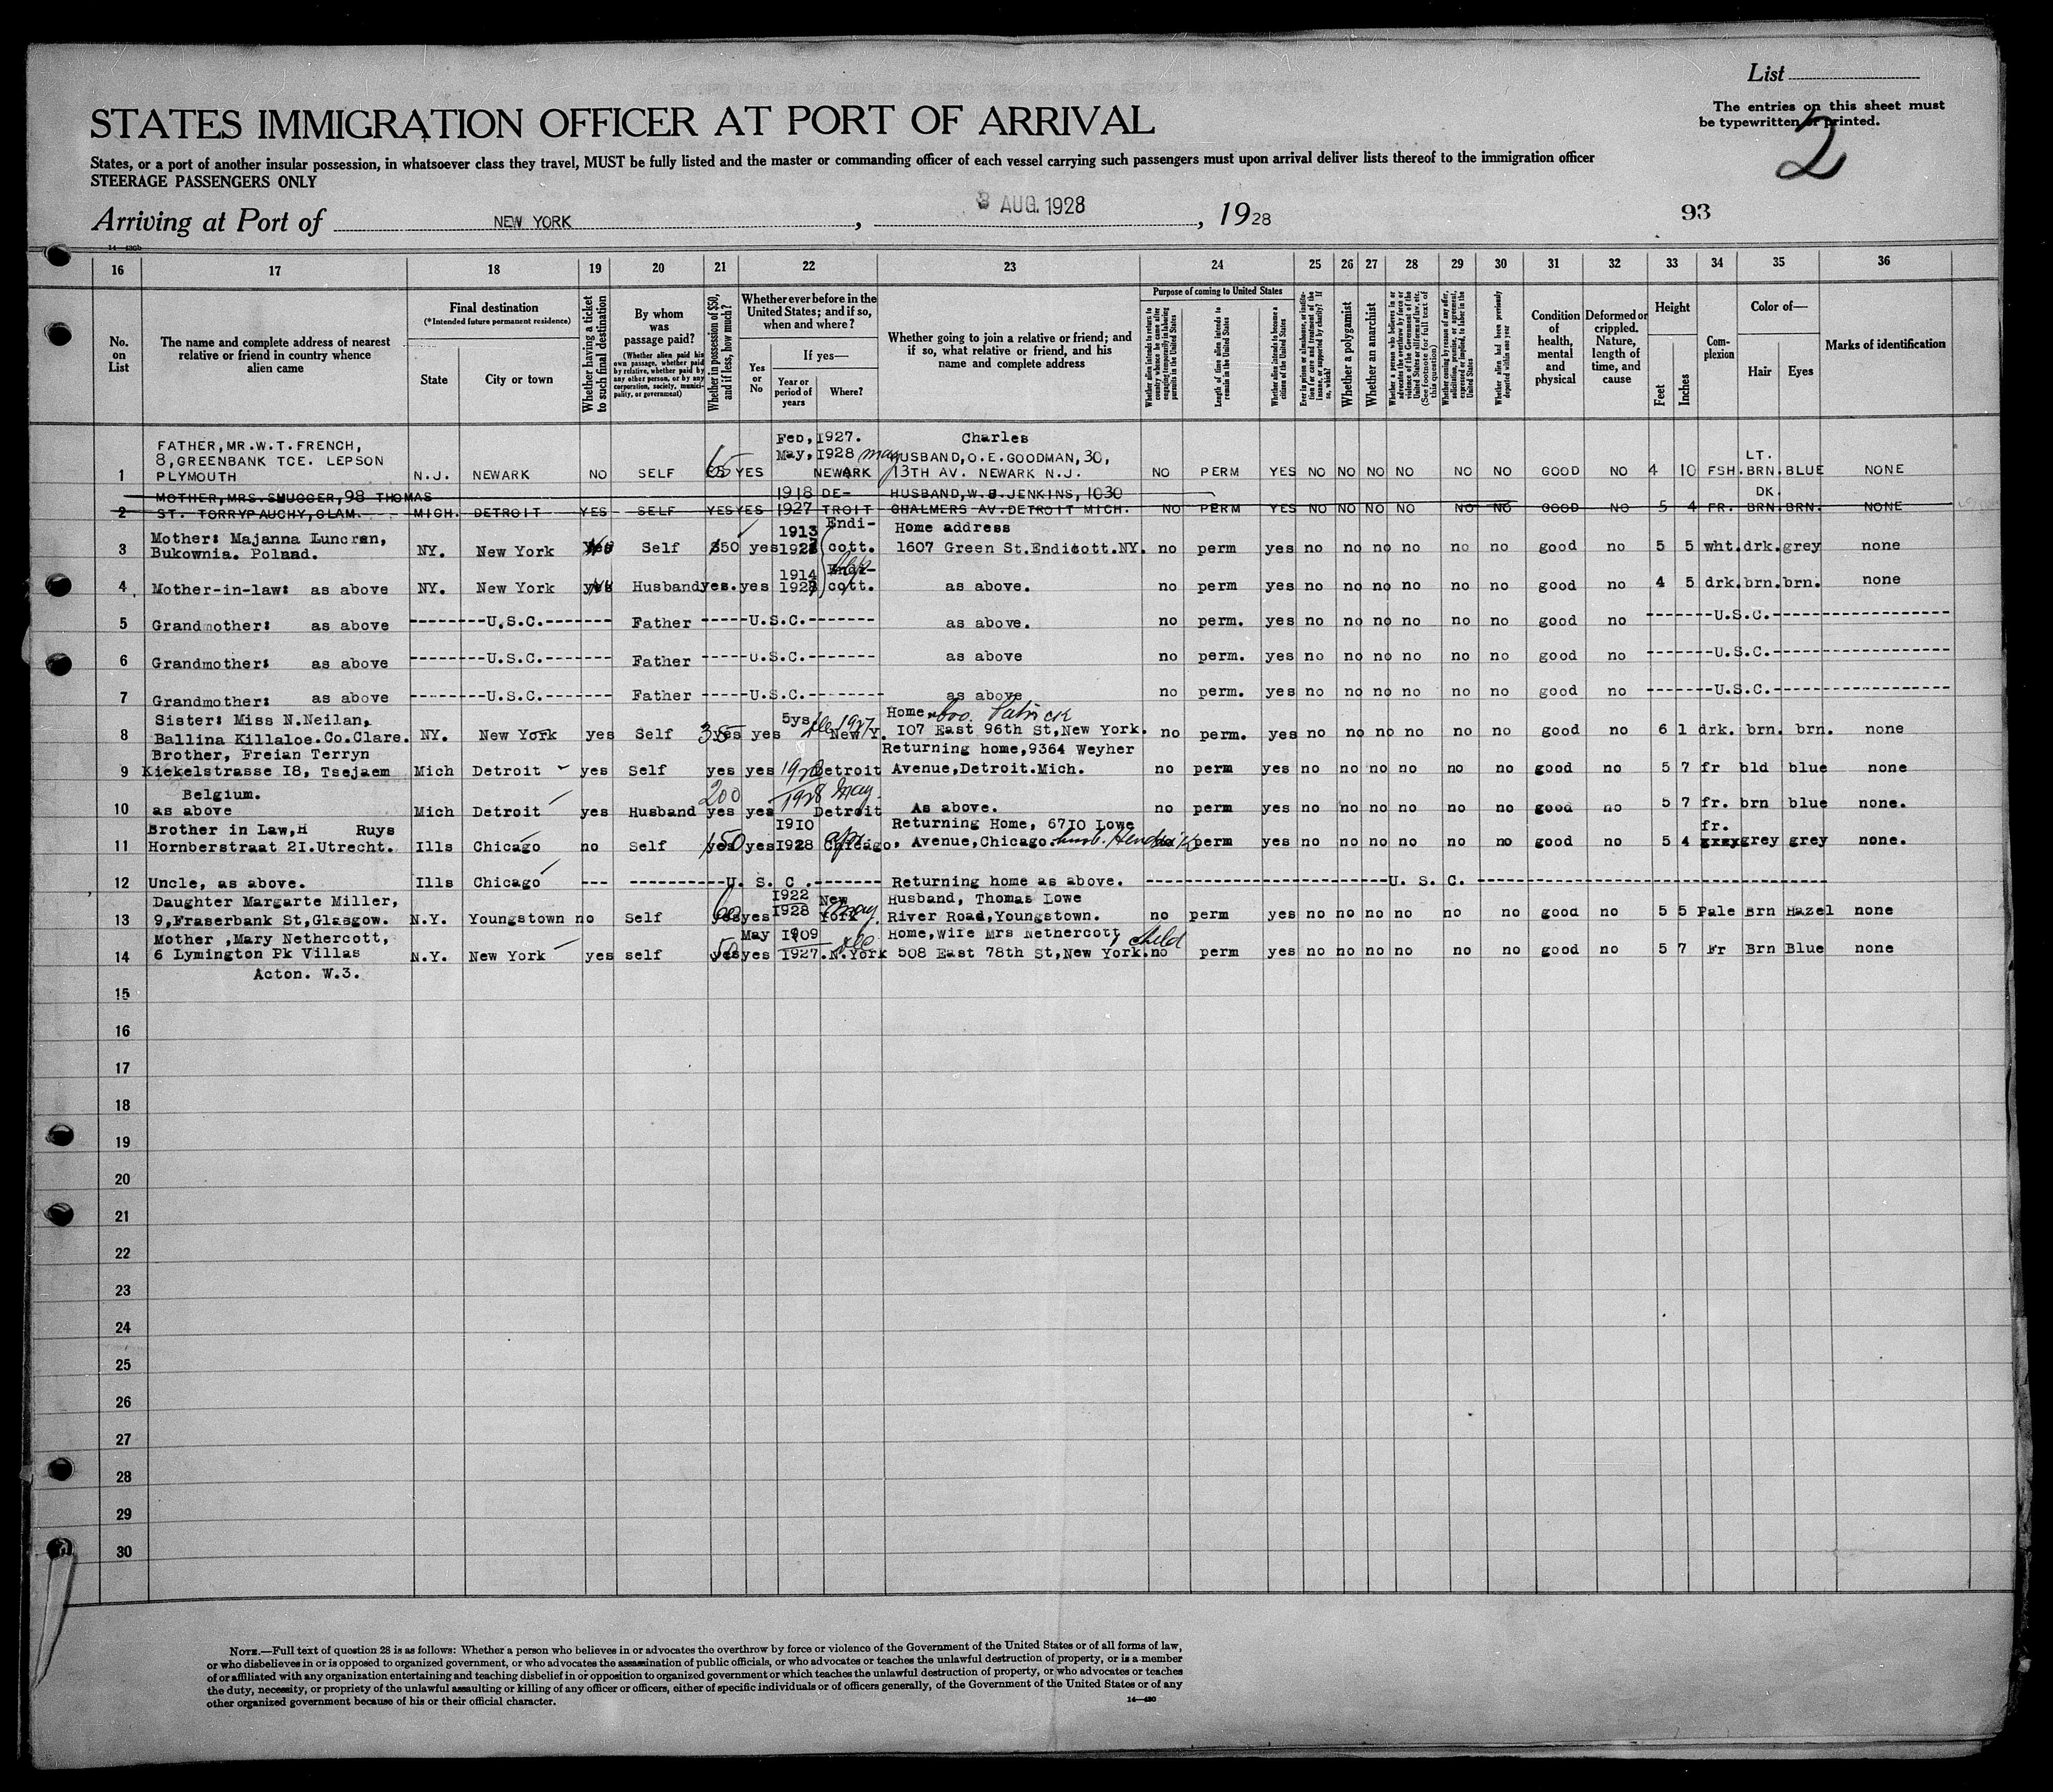 List
The entries on this sheet must
be typewritten or printed.
2
STATES IMMIGRATION OFFICER AT PORT OF ARRIVAL
States, or a port of another insular possession, in whatsoever class they travel, MUST be fully listed and the master or commanding officer of each vessel carrying such passengers must upon arrival deliver lists thereof to the immigration officer
STEERAGE PASSENGERS ONLY
Arriving at Port of NEW YORK, 3 AUG. 1928, 1928
93
14—430b
16 17 18 19 20 21 22 23 24 25 26 27 28 29 30 31 32 33 34 35 36
No. on List
The name and complete address of nearest relative or friend in country whence alien came
Final destination
(*Intended future permanent residence)
State
City or town
Whether having a ticket to such final destination
By whom was passage paid?
(Whether alien paid his own passage, whether paid by relative, whether paid by any other person, or by any corporation, society, municipality, or government)
Whether in possession of $50, and if less, how much?
Whether ever before in the United States; and if so, when and where?
Yes or No
If yes—
Year or period of years
Where?
Whether going to join a relative or friend; and if so, what relative or friend, and his name and complete address
Purpose of coming to United States
Whether alien intends to return to country whence he came after engaging temporarily in laboring pursuits in the United States
Length of time alien intends to remain in the United States
Whether alien intends to become a citizen of the United States
Whether a polygamist
Whether an anarchist
Whether alien had been previously deported within one year
Condition of health, mental and physical
Deformed or crippled. Nature, length of time, and cause
Height
Feet
Inches
Complexion
Color of—
Hair
Eyes
Marks of identification
FATHER,MR.W.T.FRENCH, Feb,1927. Charles
8,GREENBANK TCE. LEPSON May,1928 may HUSBAND,O.E.GOODMAN,30, LT.
1 PLYMOUTH N.J. NEWARK NO SELF 65 YES NEWARK 13TH AV. NEWARK N.J. NO PERM YES NO NO NO NO NO NO GOOD NO 4 10 FSH. BRN. BLUE NONE
MOTHER,MRS.SMUGGER,98 THOMAS 1918 DE- HUSBAND,W.J.JENKINS, 1030 DK.
2 ST. TORRYPAUCHY,GLAM. MICH. DETROIT YES SELF YES YES 1927 TROIT CHALMERS AV.DETROIT MICH. NO PERM YES NO NO NO NO NO NO GOOD NO 5 4 FR. BRN. BRN. NONE
Mother: Majanna Luncran, 1913 Endi- Home address
3 Bukownia. Polnad. NY. New York Self 350 yes 1928 cott. 1607 Green St.Endicott.NY. no perm yes no no no no no no good no 5 5 wht. drk. grey none
1914 Endi-
4 Mother-in-law: as above NY. New York Husband yes. yes 1928 cott. as above. no perm yes no no no no no no good no 4 5 drk. brn. brn. none
5 Grandmother: as above -------U.S.C.------- Father -----U.S.C.------- as above. no perm. yes no no no no no no good no -------U.S.C.-------
6 Grandmother: as above -------U.S.C.------- Father -----U.S.C.------- as above no perm. yes no no no no no no good no -------U.S.C.-------
7 Grandmother: as above -------U.S.C.------- Father -----U.S.C.------- as above no perm. yes no no no no no no good no -------U.S.C.-------
Sister: Miss N.Neilan, 5ys 1927 Home, bro. Patrick
8 Ballina Killaloe.Co.Clare. NY. New York yes Self yes yes New Y. 107 East 96th St,New York. no perm. yes no no no no no no good no 6 1 drk. brn. brn. none
Brother, Freian Terryn Returning home,9364 Weyher
9 Kiekelstrasse 18, Tsejaem Mich Detroit yes Self yes yes Detroit Avenue,Detroit.Mich. no perm yes no no no no no no good no 5 7 fr bld blue none
Belgium. 200 1928 May
10 as above Mich Detroit yes Husband yes yes Detroit As above. no perm yes no no no no no no good no 5 7 fr. brn blue none.
Brother in Law,H Ruys 1910 Returning Home, 6710 Lowe fr.
11 Hornberstraat 21.Utrecht. Ills Chicago no Self 150 yes 1928 Chicago, Avenue,Chicago. husb. Hendrik perm yes no no no no no no good no 5 4 xxxx grey grey none.
12 Uncle, as above. Ills Chicago --- ---------U. S. C.------- Returning home as above. ------------------U. S. C.------------------
Daughter Margarte Miller, 1922 New Husband, Thomas Lowe
13 9,Fraserbank St,Glasgow. N.Y. Youngstown no Self 60 yes 1928 York May. River Road,Youngstown. no perm yes no no no no no no good no 5 5 Pale Brn Hazel none
Mother ,Mary Nethercott, May 1909 Dec Home,Wife Mrs Nethercott, child
14 6 Lymington Pk Villas N.Y. New York yes self 50 yes 1927. N.York 508 East 78th St,New York. no perm yes no no no no no no good no 5 7 Fr Brn Blue none
Acton. W.3.
15
16
17
18
19
20
21
22
23
24
25
26
27
28
29
30
NOTE.—Full text of question 28 is as follows: Whether a person who believes in or advocates the overthrow by force or violence of the Government of the United States or of all forms of law,
or who disbelieves in or is opposed to organized government, or who advocates the assassination of public officials, or who advocates or teaches the unlawful destruction of property, or is a member
of or affiliated with any organization entertaining and teaching disbelief in or opposition to organized government or which teaches the unlawful destruction of property, or who advocates or teaches
the duty, necessity, or propriety of the unlawful assaulting or killing of any officer or officers, either of specific individuals or of officers generally, of the Government of the United States or of any
other organized government because of his or their official character.
14—430